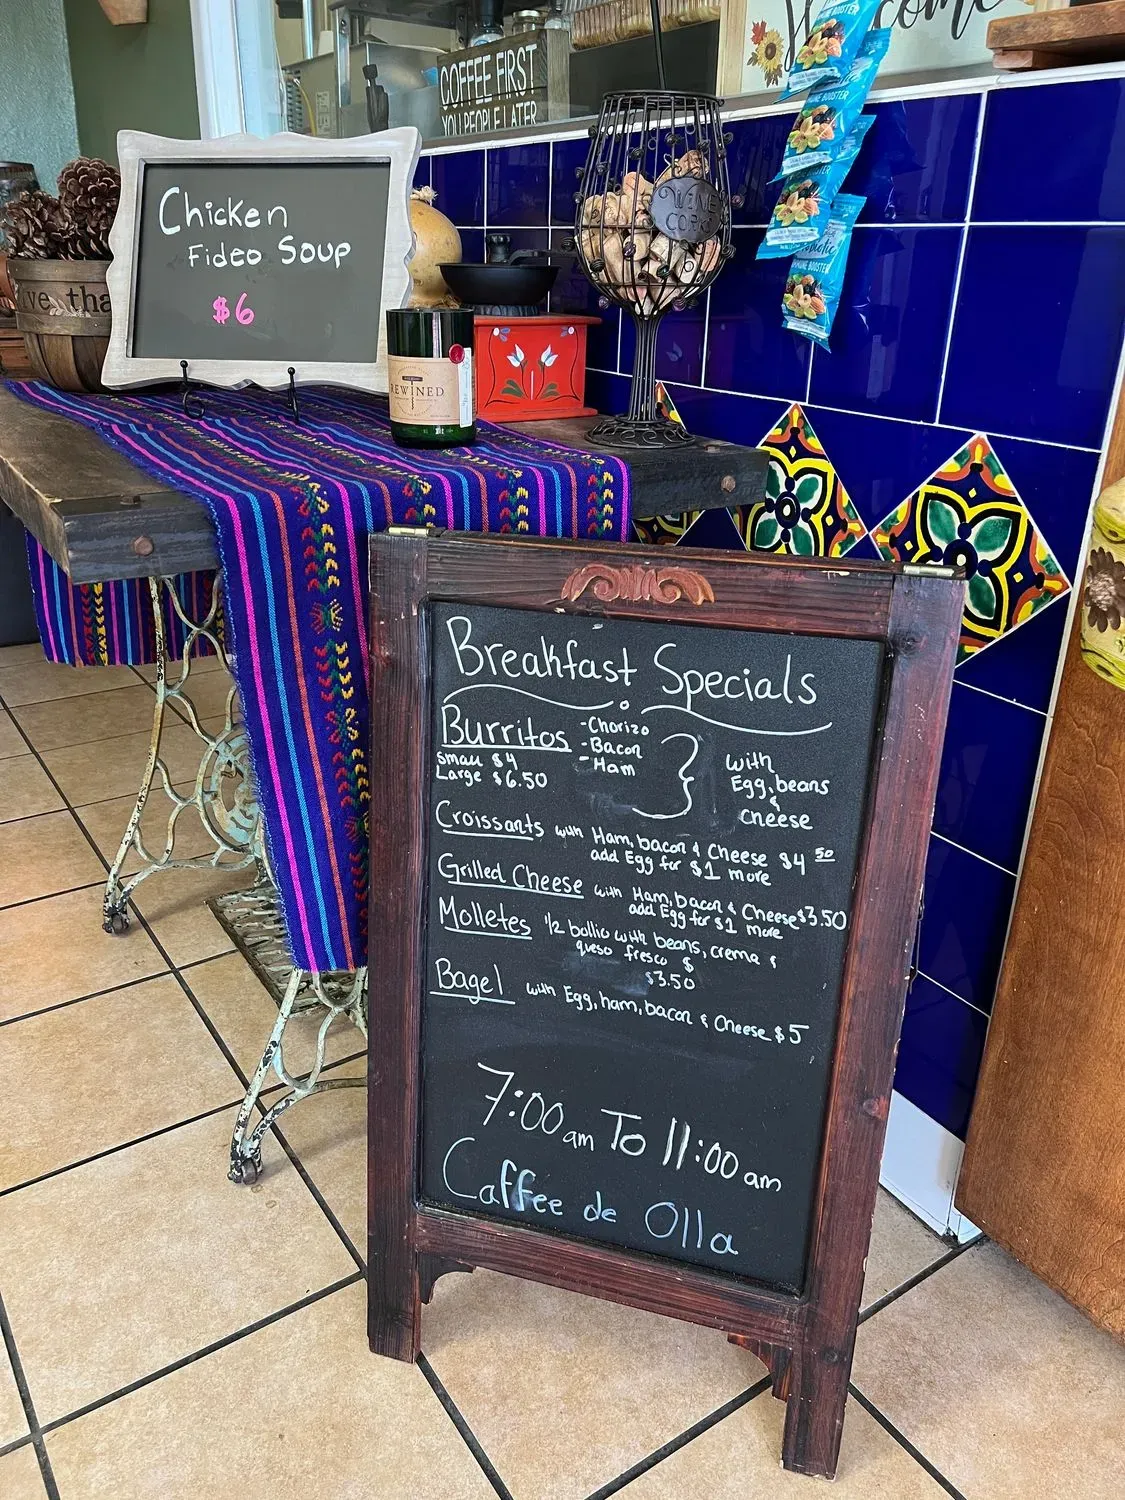 Welcome
COFFEE FIRST
YOU PEOPLE LATER
BOOSTER
IMMUNE BOOSTER
IMMUNE BOOSTER
WINE
CORK
Chicken
Fideo Soup
$6
REWINED
Breakfast Specials
Burritos
Small $4
Large $6.50
-Chorizo
-Bacon
-Ham
with
Egg, beans
&
cheese
Croissants with Ham, bacon & Cheese $4 50
add Egg for $1 more
Grilled Cheese with Ham, bacon & Cheese $3.50
add Egg for $1 more
Molletes 1/2 bollio with beans, crema &
queso fresco $
$3.50
Bagel with Egg, ham, bacon & Cheese $5
7:00 am To 11:00 am
Caffee de Olla